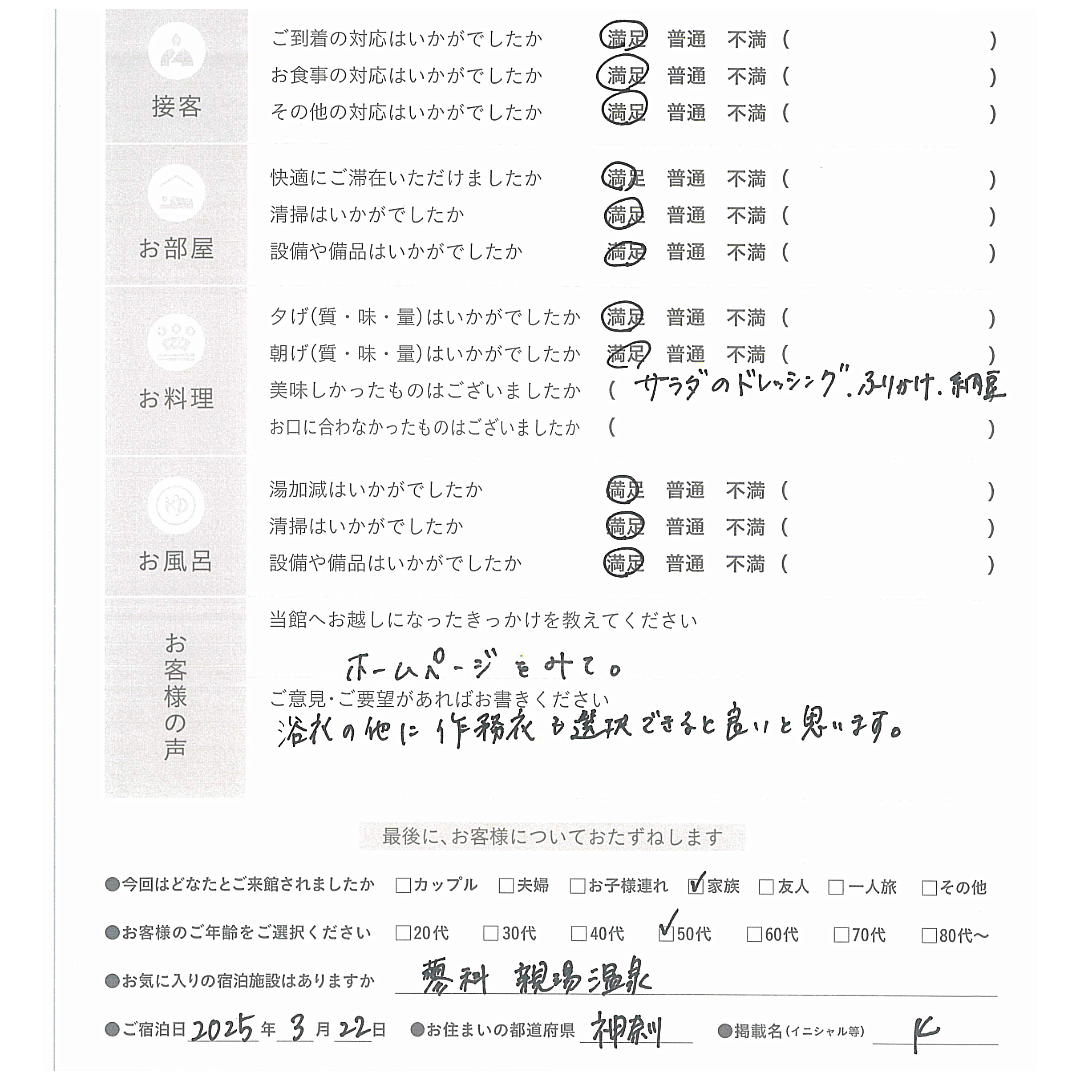 接客
ご到着の対応はいかがでしたか 満足 普通 不満 ( )
お食事の対応はいかがでしたか 満足 普通 不満 ( )
その他の対応はいかがでしたか 満足 普通 不満 ( )
お部屋
快適にご滞在いただけましたか 満足 普通 不満 ( )
清掃はいかがでしたか 満足 普通 不満 ( )
設備や備品はいかがでしたか 満足 普通 不満 ( )
お料理
夕げ(質・味・量)はいかがでしたか 満足 普通 不満 ( )
朝げ(質・味・量)はいかがでしたか 満足 普通 不満 ( )
美味しかったものはございましたか ( サラダのドレッシング、ふりかけ、納豆
お口に合わなかったものはございましたか ( )
ゆ
お風呂
湯加減はいかがでしたか 満足 普通 不満 ( )
清掃はいかがでしたか 満足 普通 不満 ( )
設備や備品はいかがでしたか 満足 普通 不満 ( )
お客様の声
当館へお越しになったきっかけを教えてください
ホームページをみて。
ご意見・ご要望があればお書きください
浴衣の他に作務衣も選択できると良いと思います。
最後に、お客様についておたずねします
●今回はどなたとご来館されましたか □カップル □夫婦 □お子様連れ ☑家族 □友人 □一人旅 □その他
●お客様のご年齢をご選択ください □20代 □30代 □40代 ☑50代 □60代 □70代 □80代～
●お気に入りの宿泊施設はありますか 蓼科 親湯温泉
●ご宿泊日 2025年 3月 22日 ●お住まいの都道府県 神奈川 ●掲載名(イニシャル等) K